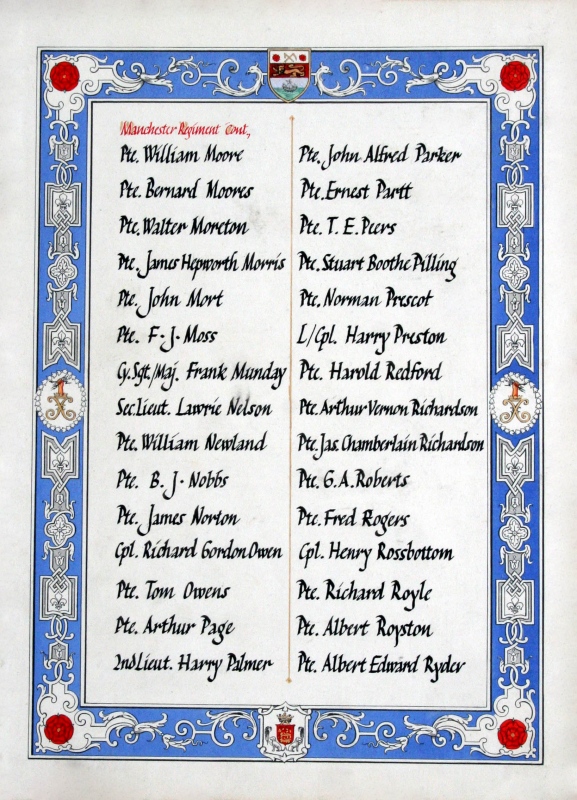 Manchester Regiment Cont,
Pte. William Moore
Pte. Bernard Moores
Pte. Walter Moreton
Pte. James Hepworth Morris
Pte. John Mort
Pte. F. J. Moss
Cy. Sgt./Maj. Frank Munday
Sec. Lieut. Lawrie Nelson
Pte. William Newland
Pte. B. J. Nobbs
Pte. James Norton
Cpl. Richard Gordon Owen
Pte. Tom Owens
Pte. Arthur Page
2nd Lieut. Harry Palmer
Pte. John Alfred Parker
Pte. Ernest Partt
Pte. T. E. Peers
Pte. Stuart Boothe Pilling
Pte. Norman Prescot
L/Cpl. Harry Preston
Pte. Harold Redford
Pte. Arthur Vernon Richardson
Pte. Jas. Chamberlain Richardson
Pte. G. A. Roberts
Pte. Fred Rogers
Cpl. Henry Rossbottom
Pte. Richard Royle
Pte. Albert Royston
Pte. Albert Edward Ryder